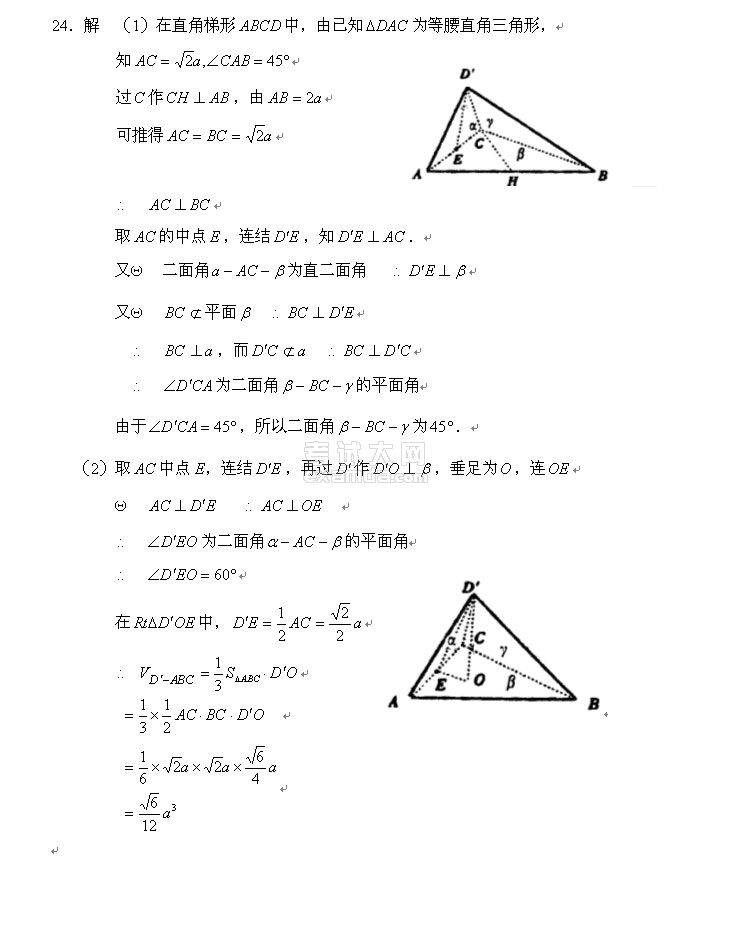 24．解 （1）在直角梯形ABCD中，由已知ΔDAC为等腰直角三角形，
知AC=√2a,∠CAB=45°
过C作CH⊥AB，由AB=2a
可推得AC=BC=√2a
D′
α γ
E C β
A H B
∴ AC⊥BC
取AC的中点E，连结D′E，知D′E⊥AC．
又Θ 二面角a−AC−β为直二面角 ∴ D′E⊥β
又Θ BC⊄平面β ∴ BC⊥D′E
∴ BC⊥a，而D′C⊄a ∴ BC⊥D′C
∴ ∠D′CA为二面角β−BC−γ的平面角
由于∠D′CA=45°，所以二面角β−BC−γ为45°．
考试大网
examda.com
（2）取AC中点E，连结D′E，再过D′作D′O⊥β，垂足为O，连OE
Θ AC⊥D′E ∴ AC⊥OE
∴ ∠D′EO为二面角α−AC−β的平面角
∴ ∠D′EO=60°
在RtΔD′OE中，D′E=1/2AC=√2/2a
∴ V_{D′−ABC}=1/3S_{△ABC}·D′O
=1/3×1/2AC·BC·D′O
=1/6×√2a×√2a×√6/4a
=√6/12a³
D′
α C γ
E O β
A B